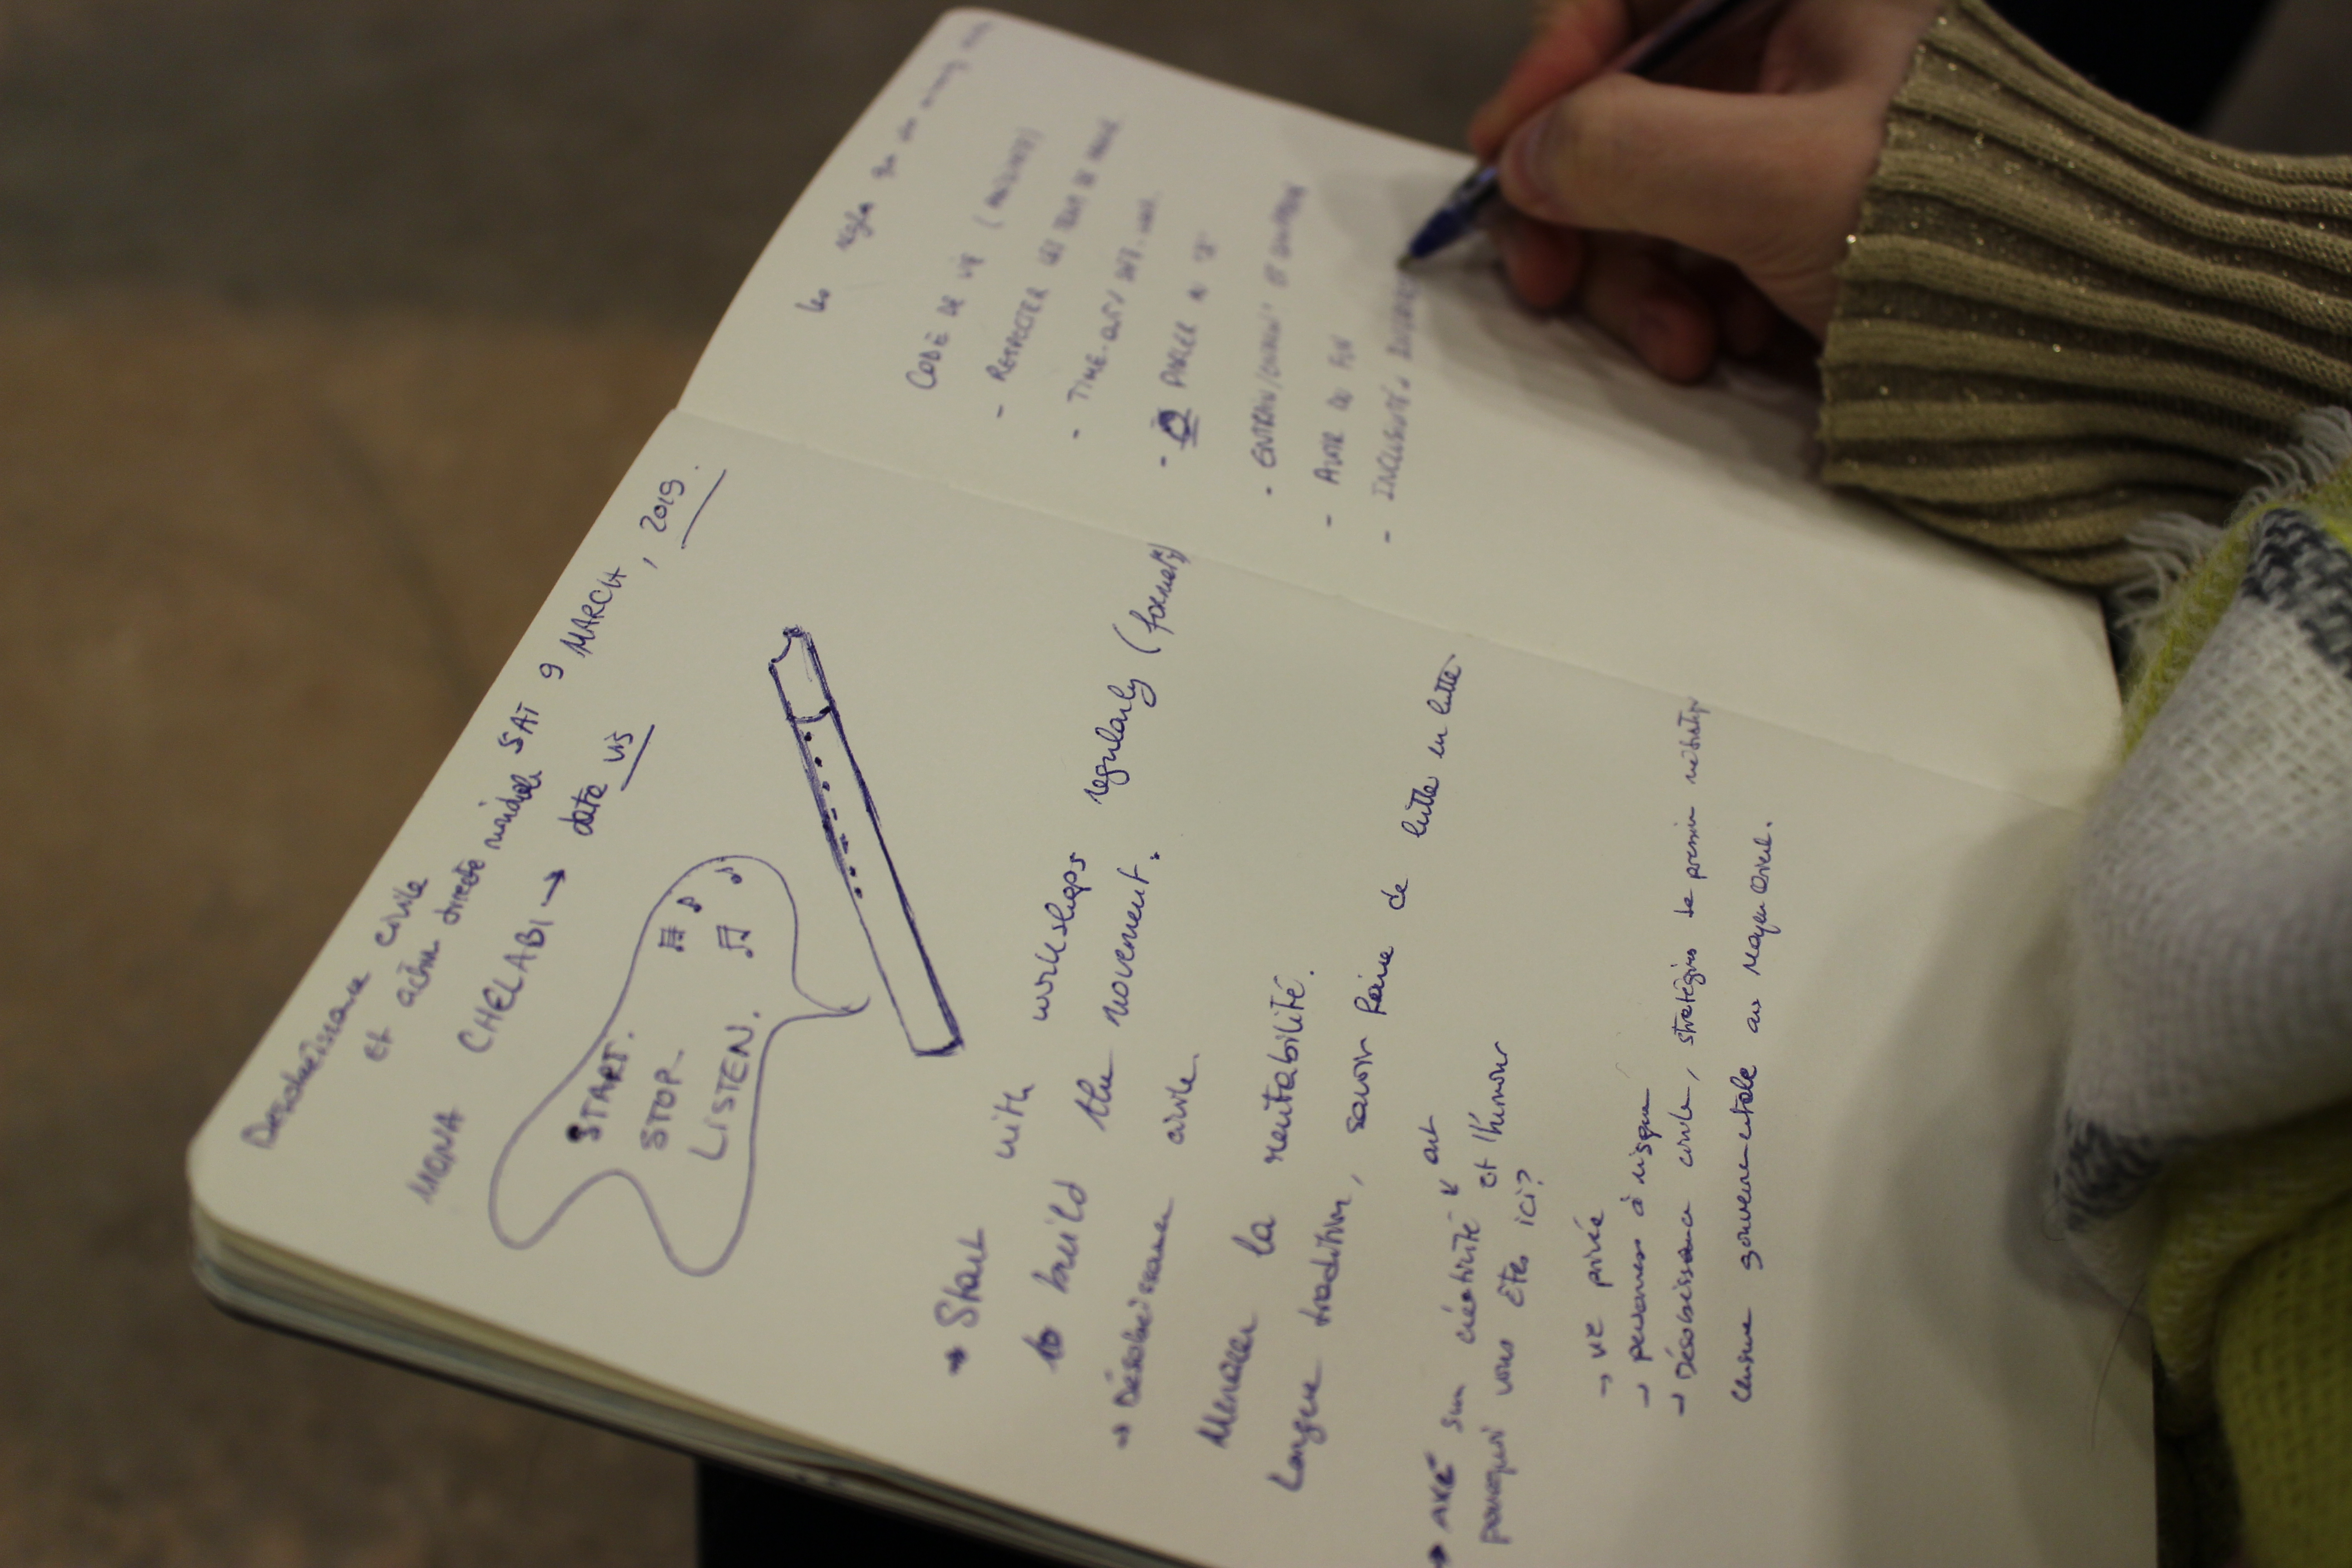 Désobéissance civile
et action directe
SAT 9 MARCH, 2019.
MONA CHELABI → data vis
START.
STOP
LISTEN.
→ Start with workshops regularly (formerly)
to build the movement.
→ Désobéissance civile
Menacer la rentabilité.
Longue tradition, savoir faire de lutte en lutte
→ AXÉ sur créativité art
et l'humour
pourquoi vous êtes ici?
→ vie privée
→ personnes à risque
→ Désobéissance civile, stratégies de
Censure gouvernementale au moyen Orient.
les règles
CODE DE VIE
- RESPECTER LES DE PAROLE
- TIME-OUT
- PARLER AU "JE"
- AVOIR DU FUN